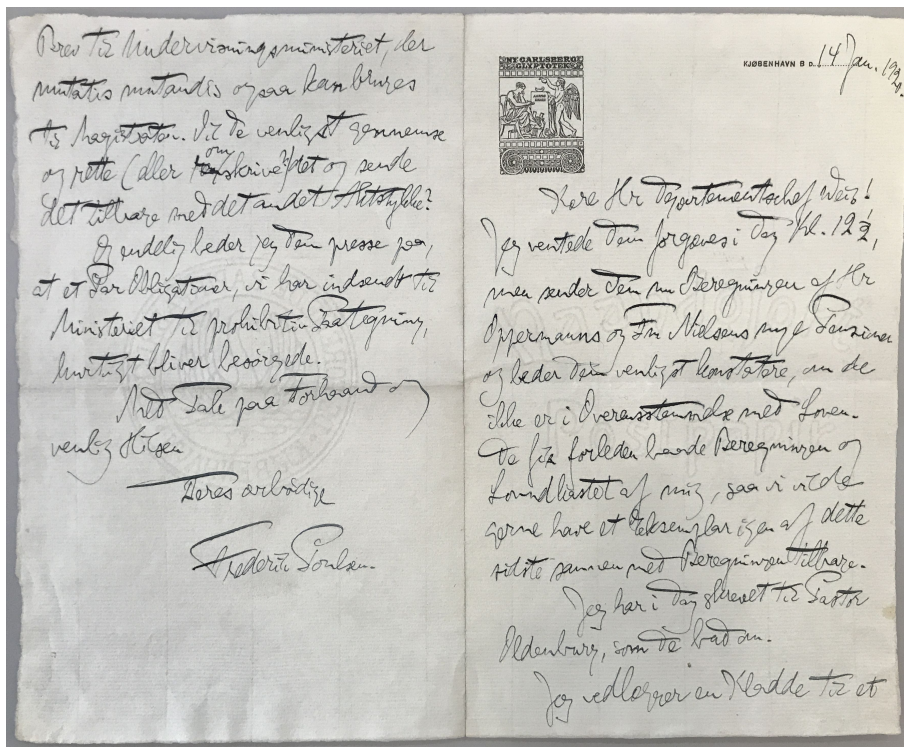 NY CARLSBERG
GLYPTOTEK
KJØBENHAVN B D. 14 Jan. 19
Kære Hr Departementschef Weis!
Jeg ventede Dem forgæves i Dag Kl. 12½,
men sender Dem nu Beregningen af Hr
Oppermanns og Frk Nielsens nye Pensioner
og beder Dem venligst konstatere, om de
ikke er i Overensstemmelse med Loven.
De fik forleden baade Beregningen og
Lovudkastet af mig, saa vi vilde
gerne have et Eksemplar igen af dette
sidste sammen med Beregningen tilbage.
Jeg har i Dag skrevet til Pastor
Oldenburg, som De bad om.
Jeg vedlægger en Kladde til et
Brev til Undervisningsministeriet, der
mutatis mutandis ogsaa kan bruges
til Magistraten. Vil De venligst gennemse
og rette (eller omskrive?) det og sende
det tilbage med det andet Aktstykke?
Og endelig beder jeg Dem presse paa,
at et Par Obligationer, vi har indsendt til
Ministeriet til prohibitiv Paategning,
hurtigt bliver besørgede.
Med Tak paa Forhaand og
venlig Hilsen
Deres ærbødige
Frederik Poulsen.